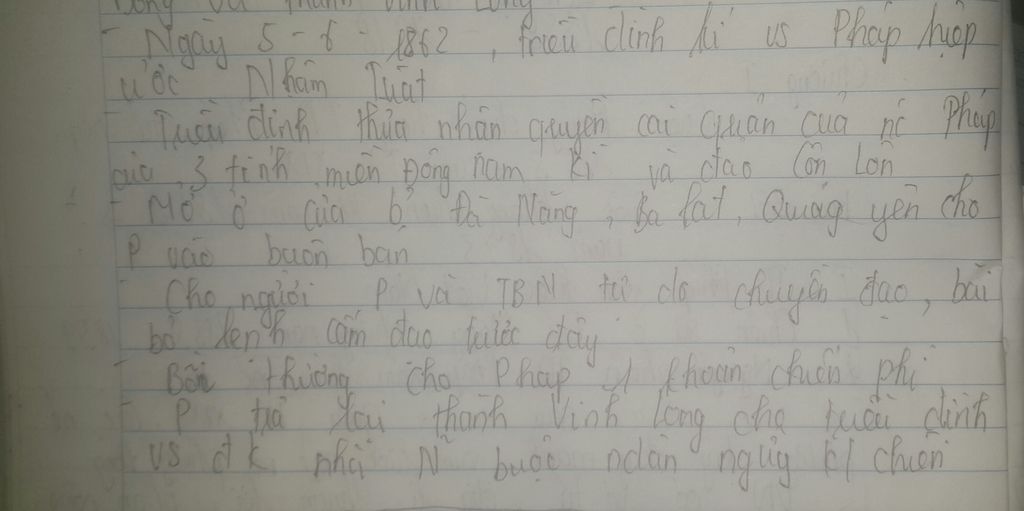 Đông và thành Vĩnh Long
- Ngày 5-6-1862, triều đình kí vs Pháp hiệp
ước Nhâm Tuất
- Triều đình thừa nhận quyền cai quản của nc Pháp
3 tỉnh miền Đông Nam Kì và đảo Côn Lôn
- Mở cửa Đà Nẵng, Ba Lạt, Quảng yên cho
P vào buôn bán
- Cho người P và TBN tự do truyền đạo, bãi
bỏ lệnh cấm đạo trước đây
- Bồi thường cho Pháp 1 khoản chiến phí
- P trả lại thành Vĩnh Long cho triều đình
vs đk nhà N buộc ndân ngừg k/ chiến